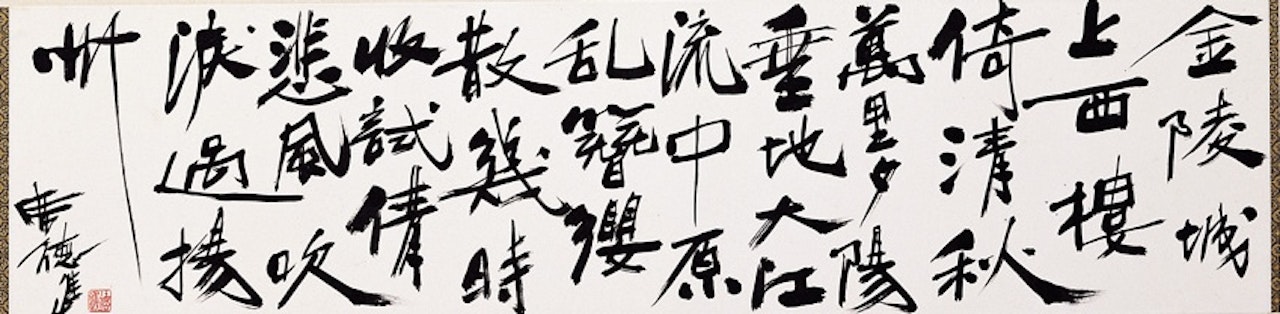 金陵城
上西樓
倚清秋
萬里夕陽
垂地大江
流中原
乱簪纓
散幾時
收試倩
悲風吹
淚過揚
州
席德進